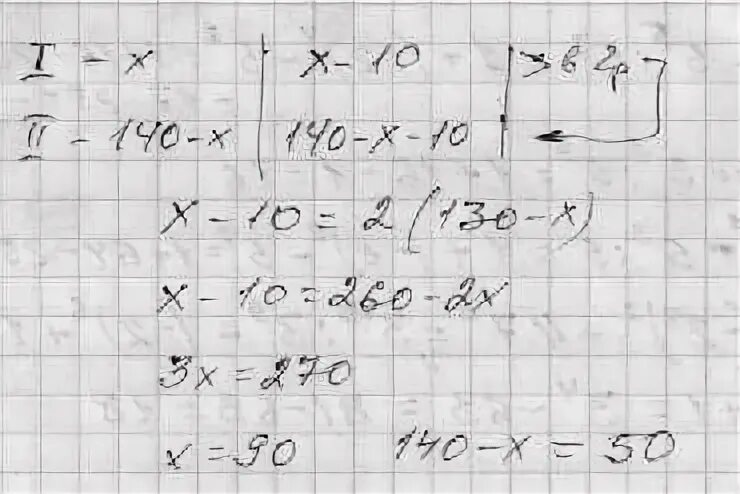 I - x | x - 10 | > в 2р
II - 140 - x | 140 - x - 10 |
x - 10 = 2 (130 - x)
x - 10 = 260 - 2x
3x = 270
x = 90 140 - x = 50